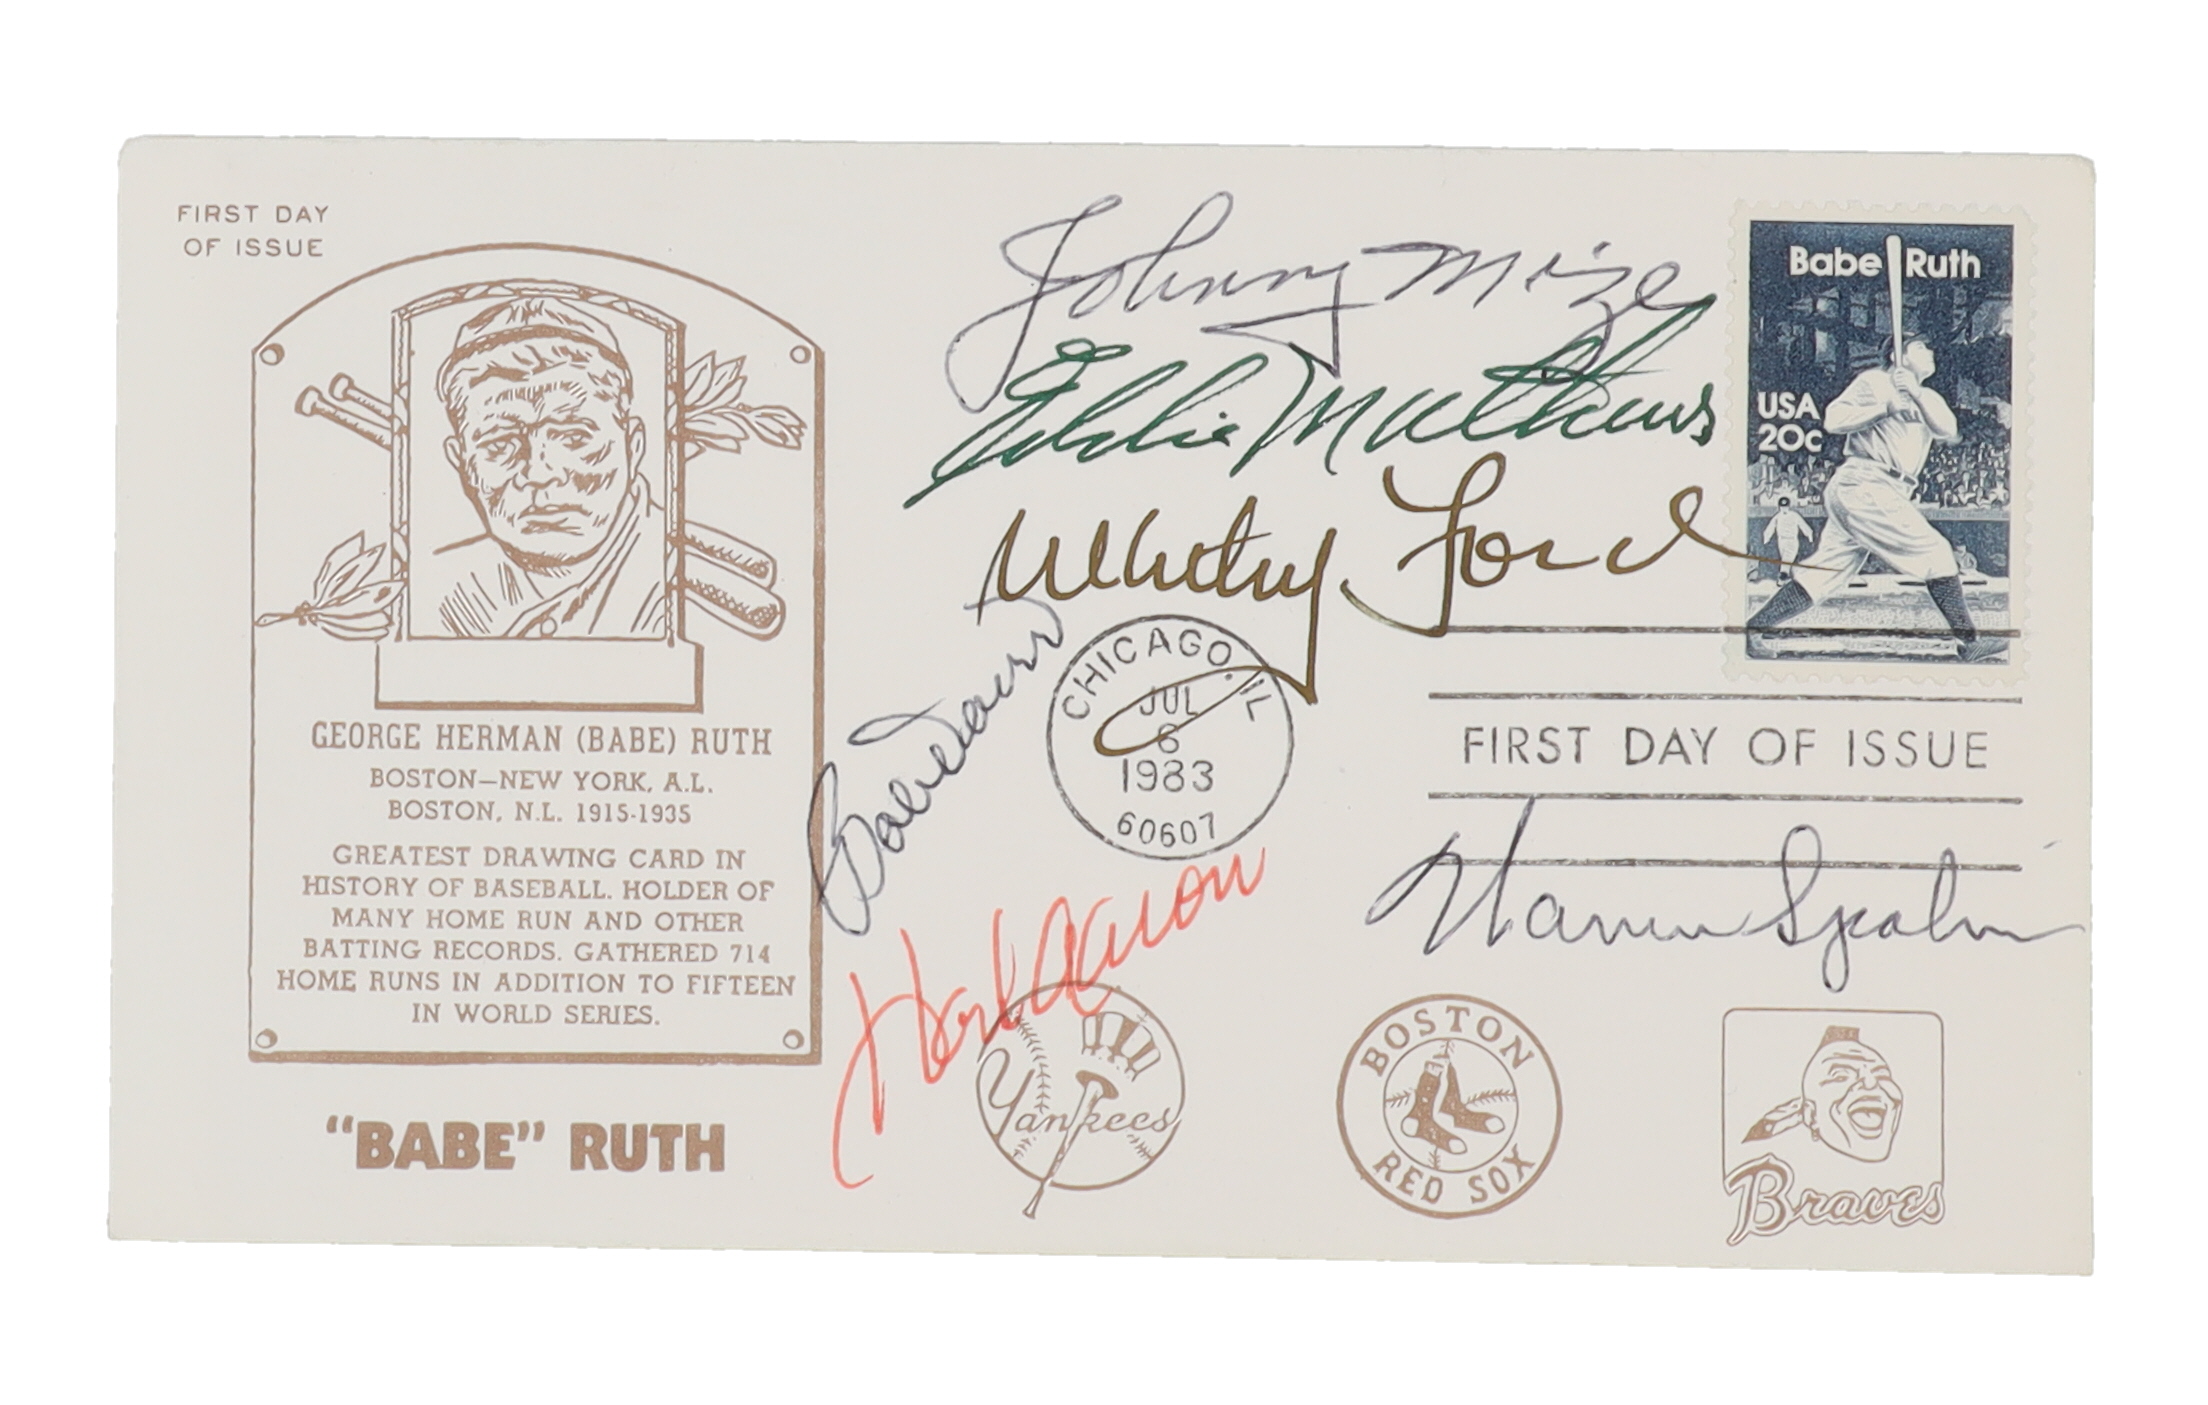 FIRST DAY
OF ISSUE
GEORGE HERMAN (BABE) RUTH
BOSTON—NEW YORK, A.L.
BOSTON, N.L. 1915-1935
GREATEST DRAWING CARD IN
HISTORY OF BASEBALL. HOLDER OF
MANY HOME RUN AND OTHER
BATTING RECORDS. GATHERED 714
HOME RUNS IN ADDITION TO FIFTEEN
IN WORLD SERIES.
"BABE" RUTH
Johnny Mize
Eddie Mathews
Whitey Ford
Bobby Doerr
Hank Aaron
Warren Spahn
Babe Ruth
USA
20c
CHICAGO, IL
JUL
6
1983
60607
FIRST DAY OF ISSUE
Yankees
BOSTON
RED SOX
Braves